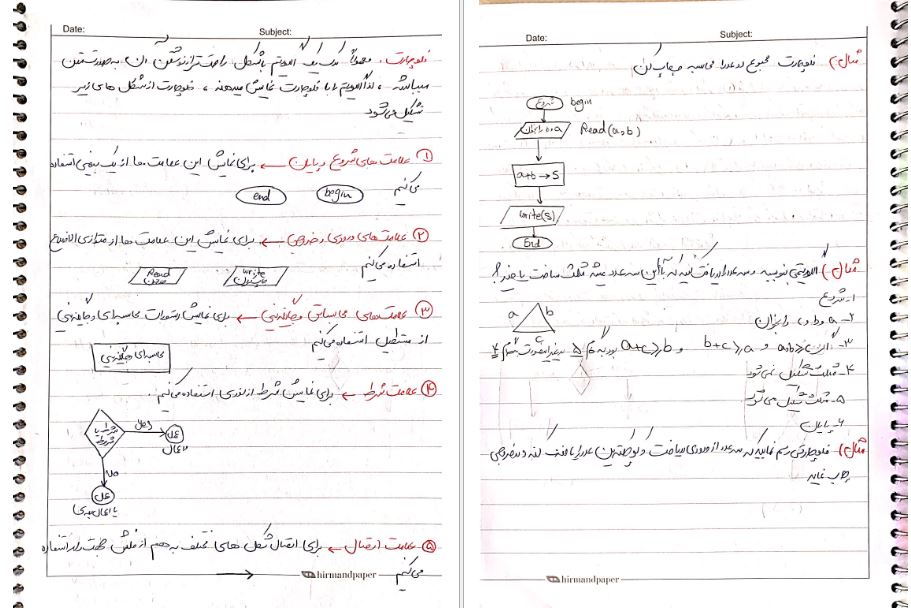 Date:
Subject:
فلوچارت:
میباشد، لذا الگوریتم را با فلوچارت نمایش میدهند، فلوچارت از شکل های زیر
تشکیل می‌شود
① علامت های شروع و پایان ← برای نمایش این علامت ها از یک بیضی استفاده
می‌کنیم
end
begin
② علامت های ورودی و خروجی ← برای نمایش این علامت ها از متوازی الاضلاع
استفاده می‌کنیم
Read
خواندن
write
③ علامت‌های محاسباتی و جایگزینی ← برای نمایش دستورات محاسبه‌ای و جایگزینی
از مستطیل استفاده می‌کنیم
محاسبه‌ای و جایگزینی
④ علامت شرط ← برای نمایش شرط از لوزی استفاده می‌کنیم.
شرط
عمل
عمل
⑤ علامت اتصال ← برای اتصال شکل های مختلف به هم از فلش جهت دار استفاده
می‌کنیم
hirmandpaper
Date:
Subject:
مثال) فلوچارت مجموع دو عدد را محاسبه و چاپ کن
شروع begin
Read(a,b)
a+b→S
write(S)
End
مثال) الگوریتمی بنویسید که سه عدد را دریافت کند که آیا این سه عدد مثلث ساخت یا خیر؟
۱- شروع
a b
۲- a و b و c را بخوان
۳- اگر a+b>c و b+c>a و a+c>b برو به گام ۵ در غیر اینصورت گام ۴
۴- مثلث تشکیل نمی شود
۵- مثلث تشکیل می شود
۶- پایان
مثال) فلوچارتی رسم نمایید که سه عدد از ورودی دریافت و کوچکترین عدد را یافت کند و در خروجی
چاپ نماید
hirmandpaper